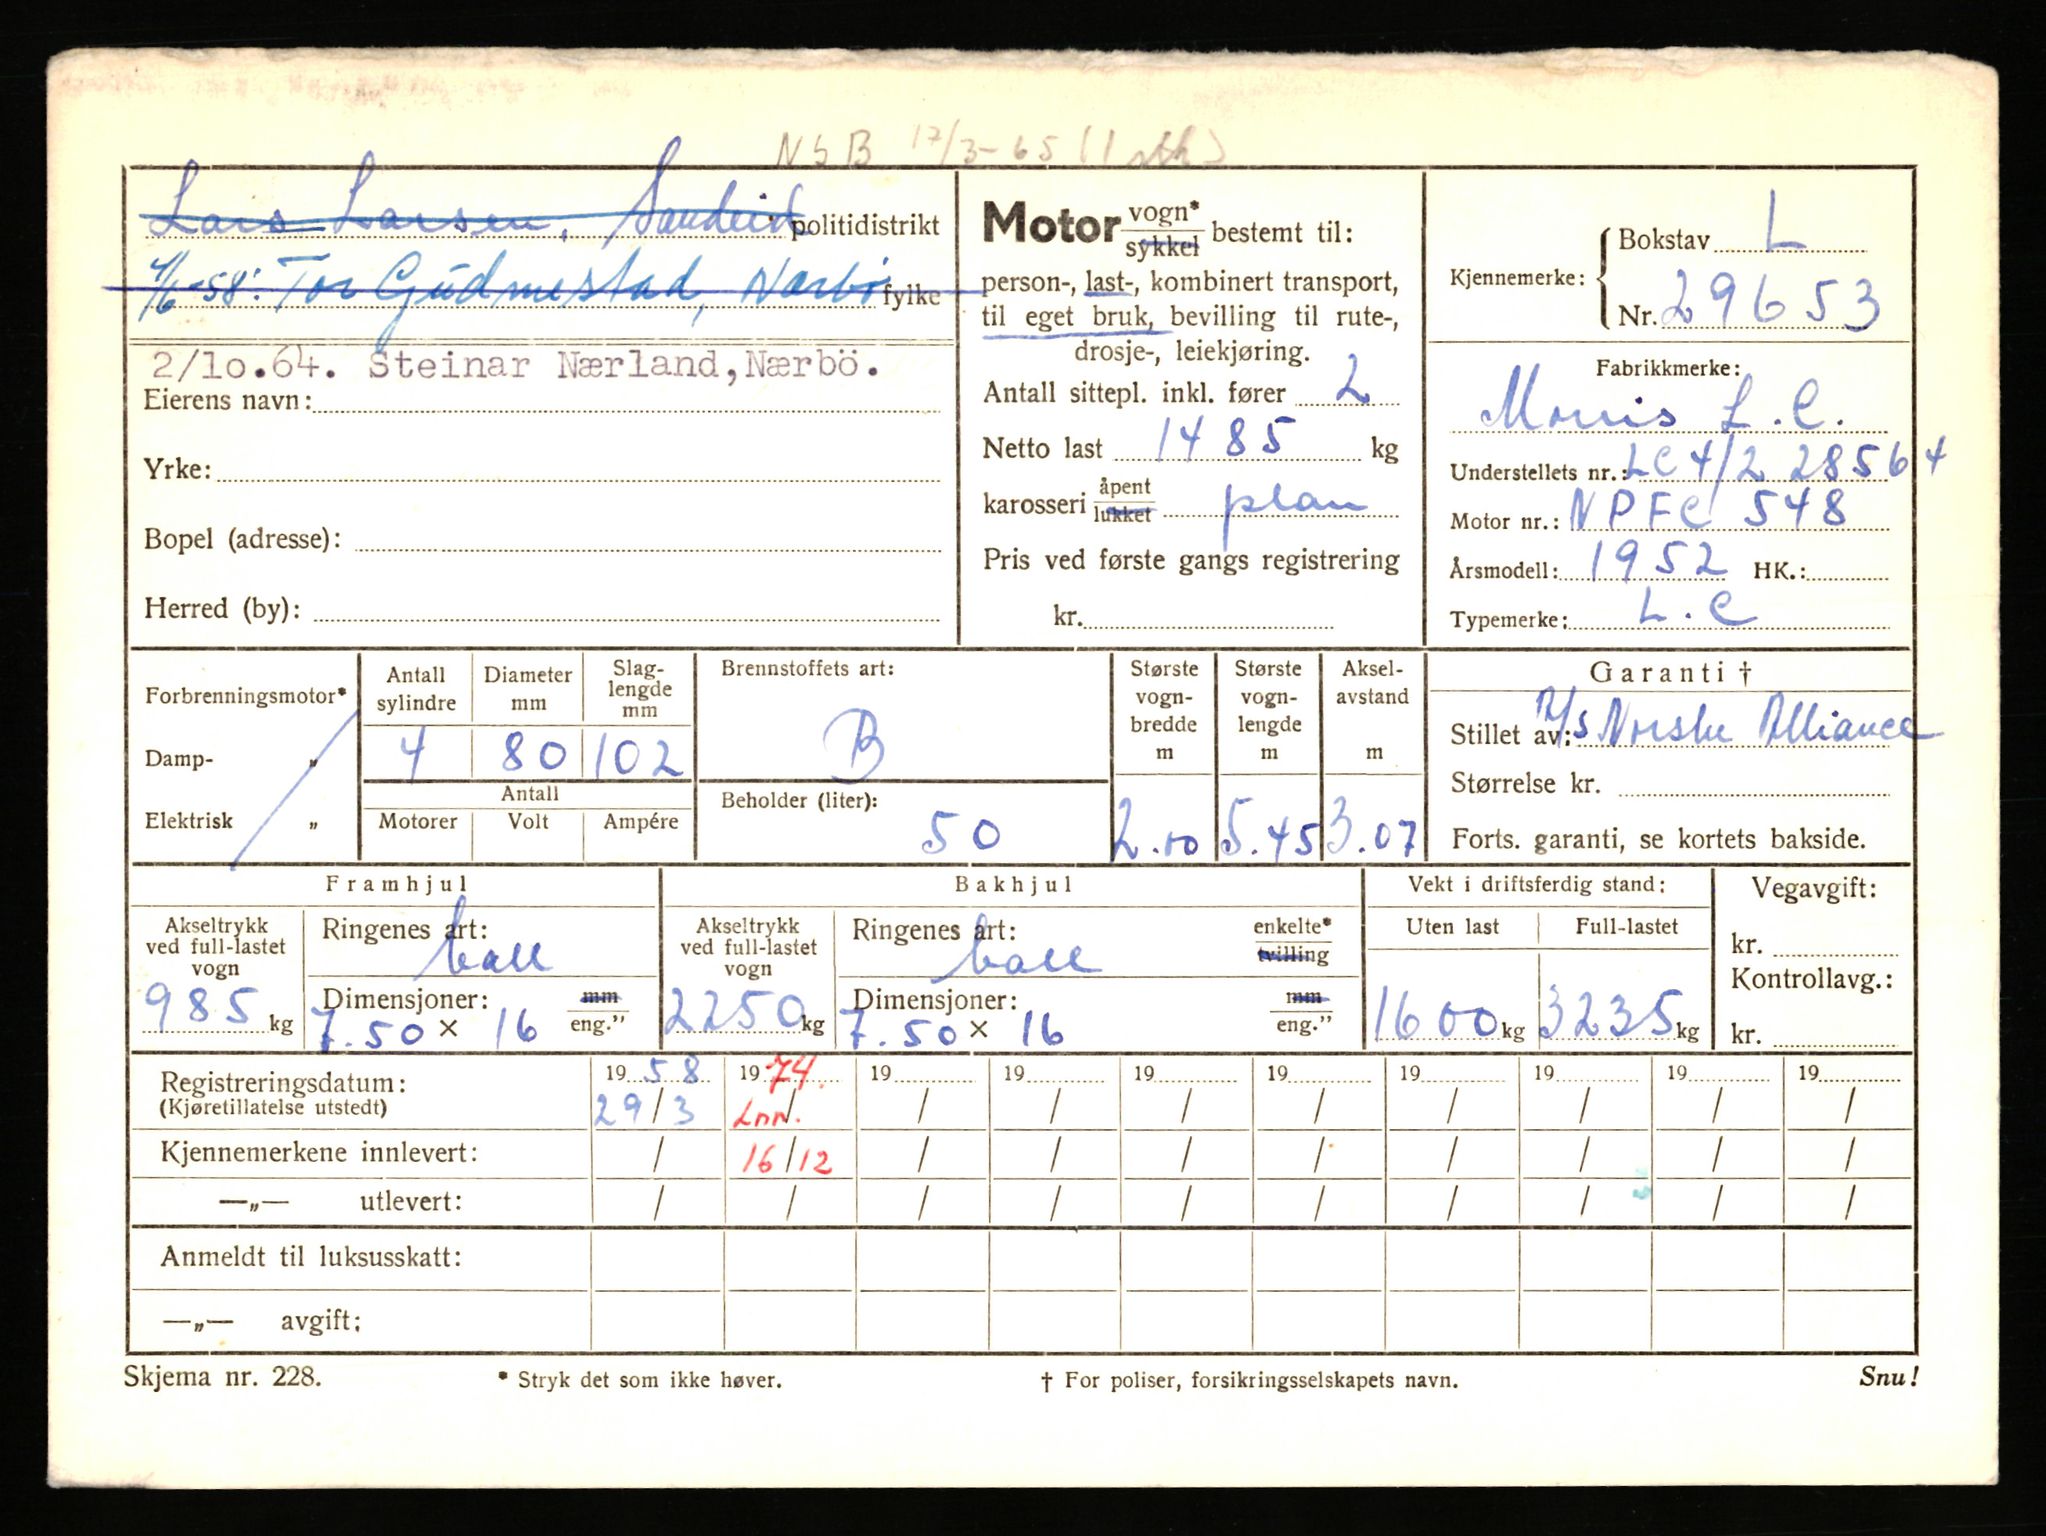 NSB 17/3-65 (1 stk)
Lars Larsen, Sandeid politidistrikt
4/6-58: Tor Gudmestad, Nærbø fylke
2/10.64. Steinar Nærland, Nærbö.
Eierens navn:
Yrke:
Bopel (adresse):
Herred (by):
Motor vogn* sykkel bestemt til:
person-, last-, kombinert transport,
til eget bruk, bevilling til rute-,
drosje-, leiekjøring.
Antall sittepl. inkl. fører 2
Netto last 1485 kg
karosseri åpent lukket plan
Pris ved første gangs registrering
kr.
Kjennemerke:
Bokstav L
Nr. 29653
Fabrikkmerke:
Morris L.C.
Understellets nr.: LC4/228564
Motor nr.: NPFC 548
Årsmodell: 1952 HK.:
Typemerke: L.C
Forbrenningsmotor*
Damp- „
Elektrisk „
Antall sylindre 4
Diameter mm 80
Slag-lengde mm 102
Antall
Motorer Volt Ampére
Brennstoffets art:
B
Beholder (liter):
50
Største vogn-bredde m 2.00
Største vogn-lengde m 5.45
Aksel-avstand m 3.07
Garanti †
Stillet av: A/S Norske Alliance
Størrelse kr.
Forts. garanti, se kortets bakside.
Framhjul
Akseltrykk ved full-lastet vogn
985 kg
Ringenes art:
ball
Dimensjoner: mm eng."
7.50 × 16
Bakhjul
Akseltrykk ved full-lastet vogn
2250 kg
Ringenes art: enkelte* tvilling
ball
Dimensjoner: mm eng."
7.50 × 16
Vekt i driftsferdig stand:
Uten last Full-lastet
1600 kg 3235 kg
Vegavgift:
kr.
Kontrollavg.:
kr.
Registreringsdatum: 19 58 19 74. 19 19 19 19 19 19 19 19
(Kjøretillatelse utstedt) 29/3 Lnn. / / / / / / / / /
Kjennemerkene innlevert: / 16/12 / / / / / / / /
—„— utlevert: / / / / / / / / / /
Anmeldt til luksusskatt:
—„— avgift:
Skjema nr. 228. * Stryk det som ikke høver. † For poliser, forsikringsselskapets navn. Snu!